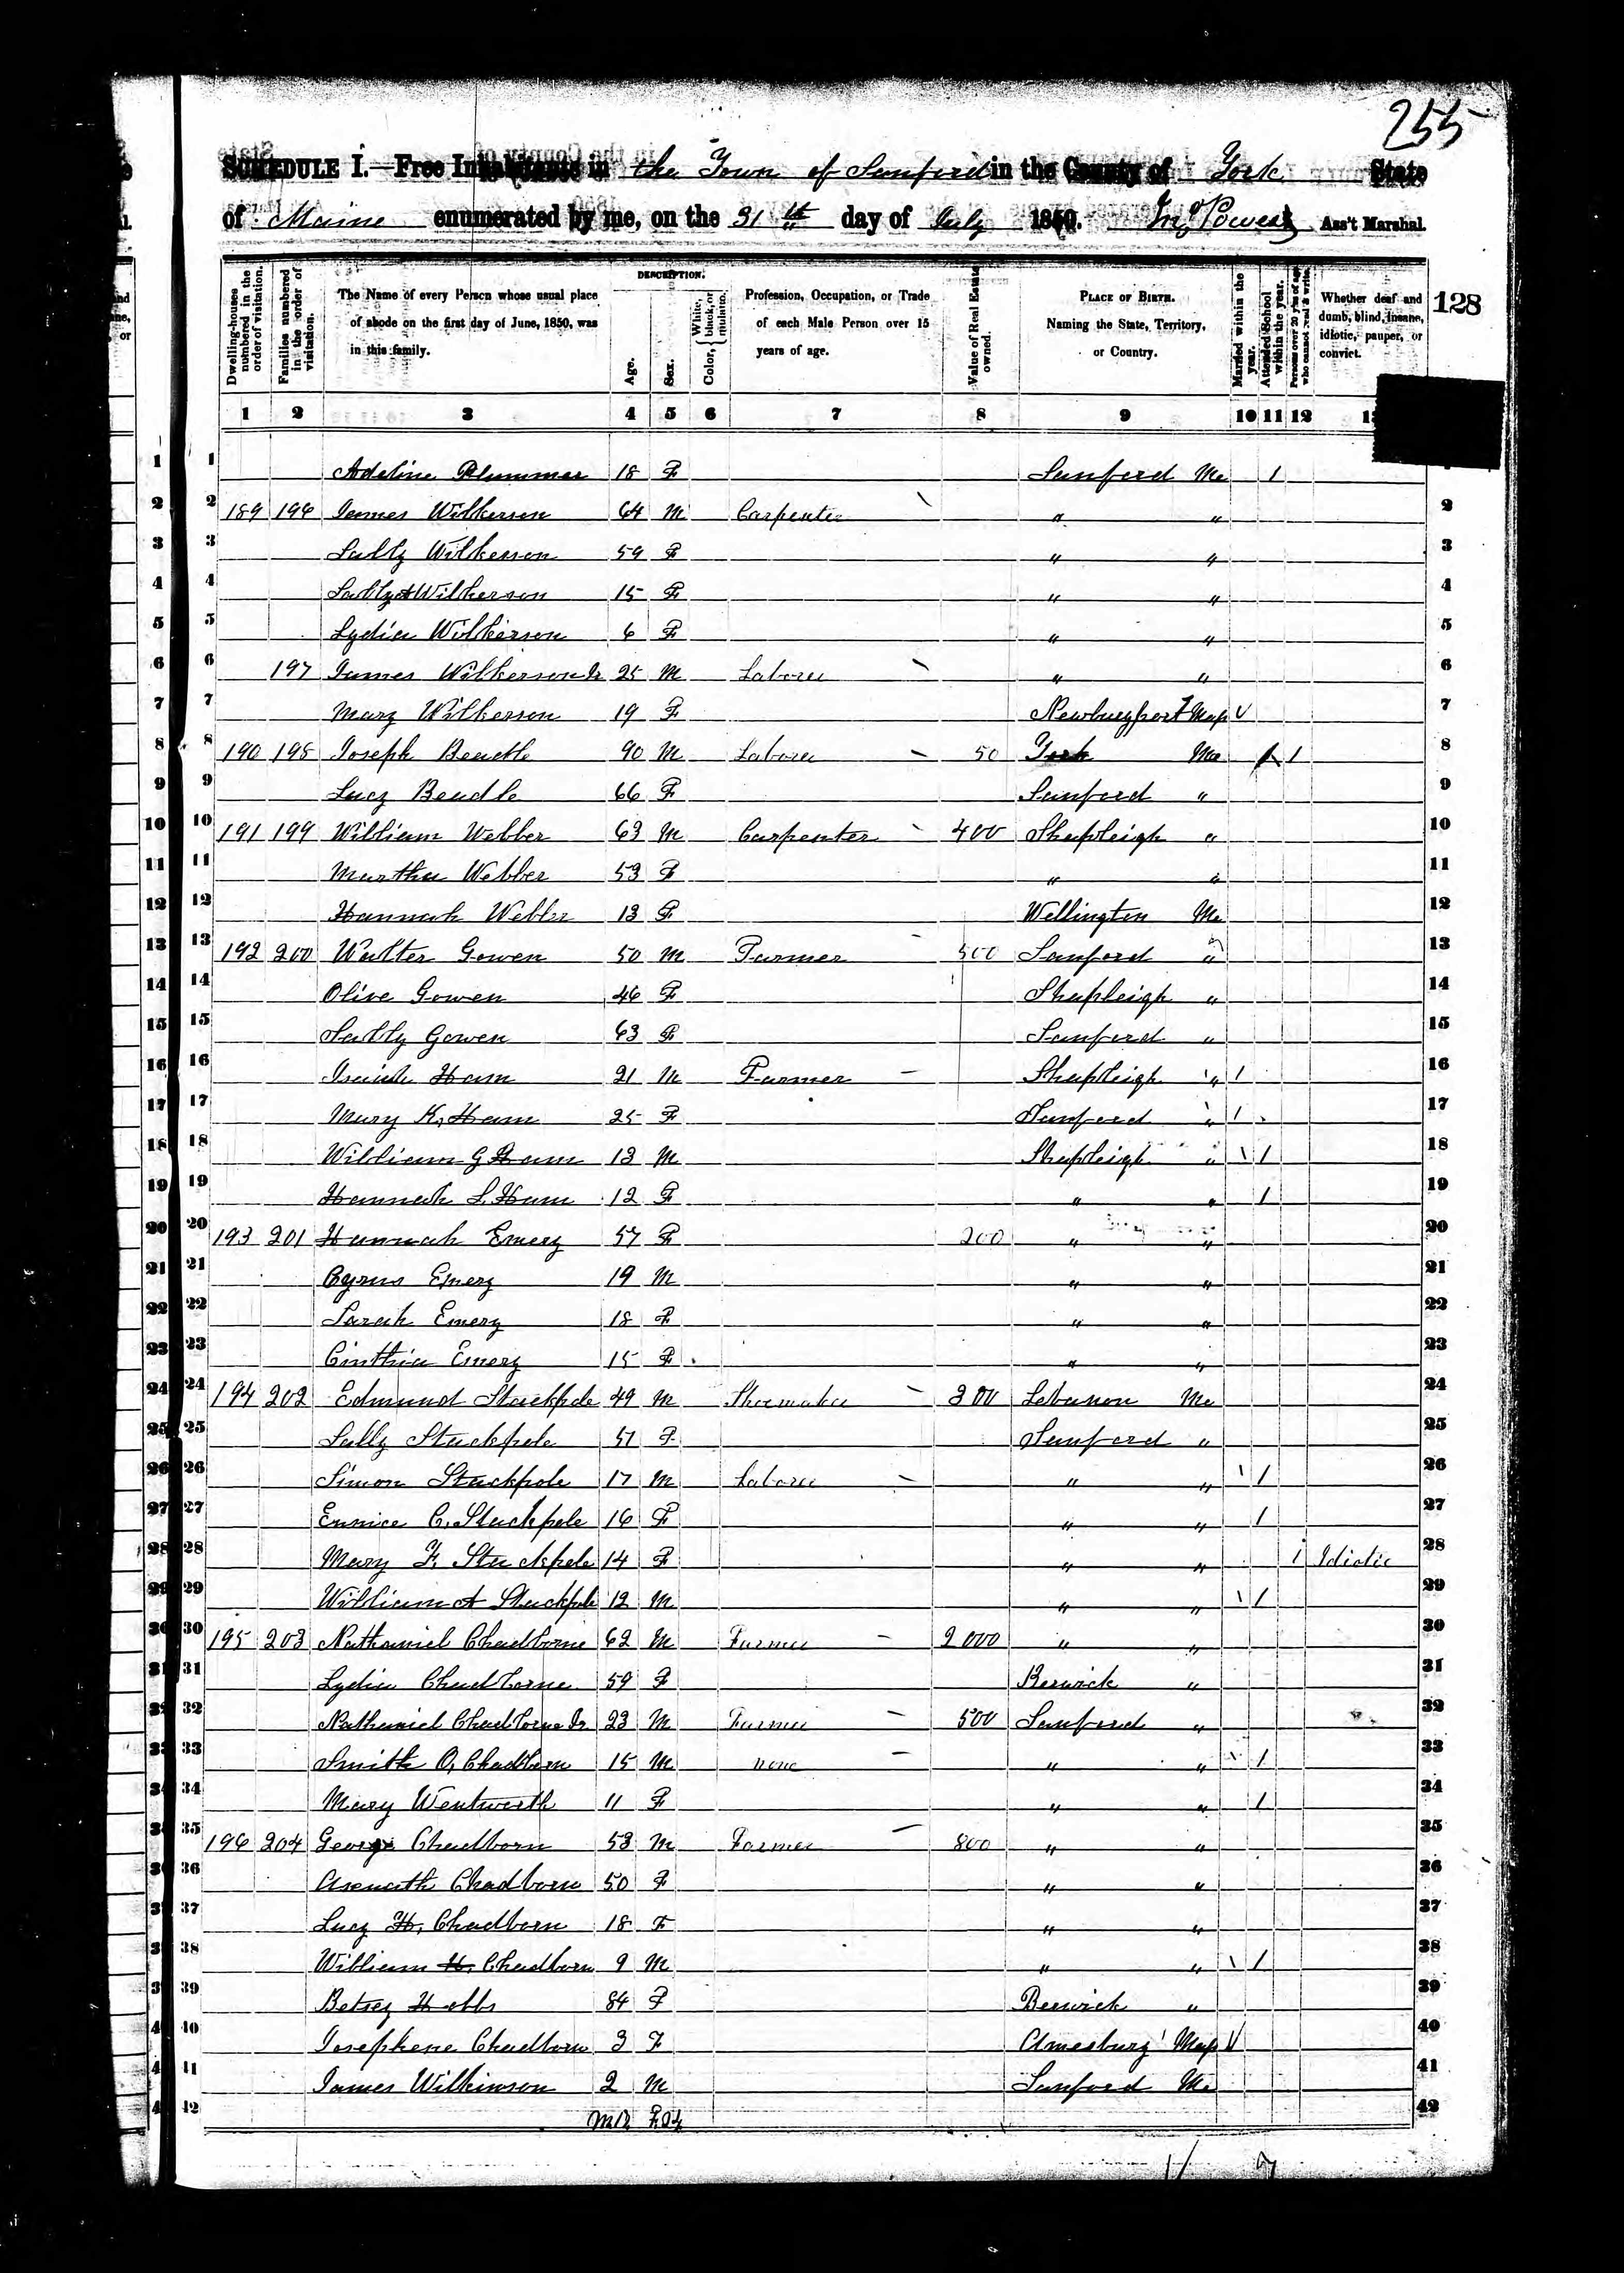 255
SCHEDULE I.—Free Inhabitants in the Town of Sanford in the County of York State
of Maine enumerated by me, on the 31th day of July 1850. Jno Powers Ass't Marshal.
Dwelling-houses numbered in the order of visitation.
Families numbered in the order of visitation.
The Name of every Person whose usual place of abode on the first day of June, 1850, was in this family.
DESCRIPTION.
Age.
Sex.
Color, White, black, or mulatto.
Profession, Occupation, or Trade of each Male Person over 15 years of age.
Value of Real Estate owned.
PLACE OF BIRTH.
Naming the State, Territory, or Country.
Married within the year.
Attended School within the year.
Persons over 20 y'rs of age who cannot read & write.
Whether deaf and dumb, blind, insane, idiotic, pauper, or convict.
128
1 2 3 4 5 6 7 8 9 10 11 12
1 Adeline Plummer 18 F Sanford Me 1
2 189 196 James Wilkerson 64 M Carpenter " " 2
3 Sally Wilkerson 59 F " " 3
4 Sally A Wilkerson 15 F " " 4
5 Lydia Wilkerson 6 F " " 5
6 197 James Wilkerson Jr 25 M Laborer " " 6
7 Mary Wilkerson 19 F Newburyport Mass 7
8 190 198 Joseph Beadle 90 M Laborer 50 York Me 1 8
9 Lucy Beadle 66 F Sanford " 9
10 191 199 William Webber 63 M Carpenter 400 Shapleigh " 10
11 Martha Webber 53 F " " 11
12 Hannah Webber 13 F Wellington Me 12
13 192 200 Walter Gowen 50 M Farmer 500 Sanford " 13
14 Olive Gowen 46 F Shapleigh " 14
15 Sally Gowen 63 F Sanford " 15
16 Isaiah Ham 21 M Farmer Shapleigh " 1 16
17 Mary K. Ham 25 F Sanford " 1 17
18 William G Ham 13 M Shapleigh " 1 18
19 Hannah S. Ham 12 F " " 1 19
20 193 201 Hannah Emery 57 F 200 " " 20
21 Cyrus Emery 19 M " " 21
22 Sarah Emery 18 F " " 22
23 Cinthia Emery 15 F " " 23
24 194 202 Edmund Stackpole 49 M Shoemaker 300 Lebanon Me 24
25 Sally Stackpole 51 F Sanford " 25
26 Simon Stackpole 17 M Laborer " " 1 26
27 Eunice C. Stackpole 16 F " " 1 27
28 Mary F. Stackpole 14 F " " 1 Idiotic 28
29 William A Stackpole 12 M " " 1 29
30 195 203 Nathaniel Chadborne 62 M Farmer 2000 " " 30
31 Lydia Chadborne 59 F Berwick " 31
32 Nathaniel Chadborne Jr 23 M Farmer 500 Sanford " 32
33 Smith O. Chadborn 15 M none " " 1 33
34 Mary Wentworth 11 F " " 1 34
35 196 204 George Chadborn 53 M Farmer 800 " " 35
36 Asenath Chadborn 50 F " " 36
37 Lucy H. Chadborn 18 F " " 37
38 William H. Chadborn 9 M " " 1 38
39 Betsey Hobbs 84 F Berwick " 39
40 Josephene Chadborn 3 F Amesbury Mass 40
41 James Wilkinson 2 M Sanford Me 41
42